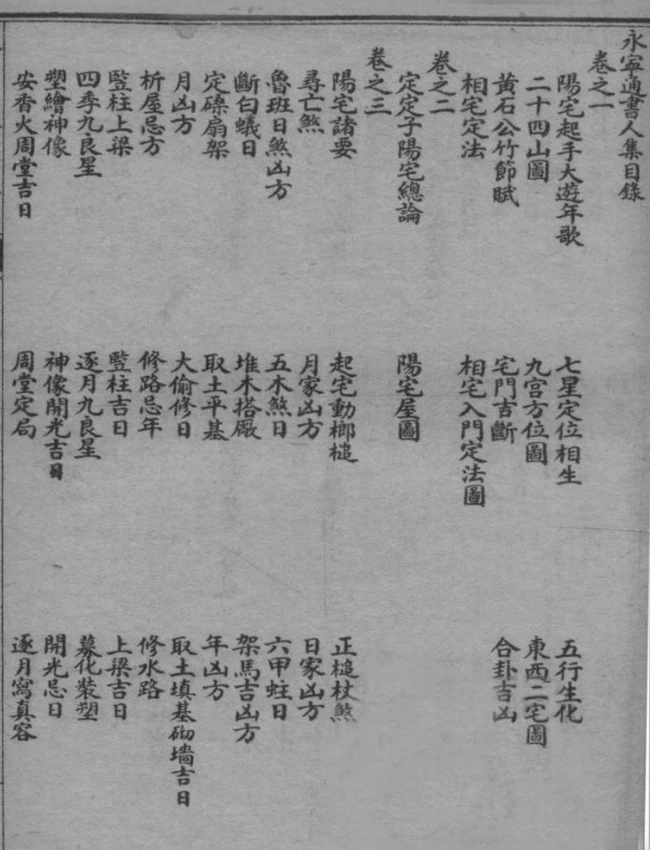 永寧通書人集目錄
卷之一
陽宅起手大遊年歌 七星定位相生 五行生化
二十四山圖 九宮方位圖 東西二宅圖
黃石公竹節賦 宅門吉斷 合卦吉凶
相宅定法 相宅入門定法圖
卷之二
定定子陽宅總論 陽宅屋圖
卷之三
陽宅諸要 起宅動榔槌 正槌杖煞
尋亡煞 月家凶方 日家凶方
魯班日煞凶方 五木煞日 六甲蛀日
斷白蟻日 堆木搭厰 架馬吉凶方
定磉扇架 取土平基 年凶方
月凶方 大偷修日 取土填基砌墙吉日
析屋忌方 修路忌年 修水路
竪柱上梁 竪柱吉日 上梁吉日
四季九良星 逐月九良星 募化裝塑
塑繪神像 神像開光吉日 開光忌日
安香火周堂吉日 周堂定局 逐月寫真容